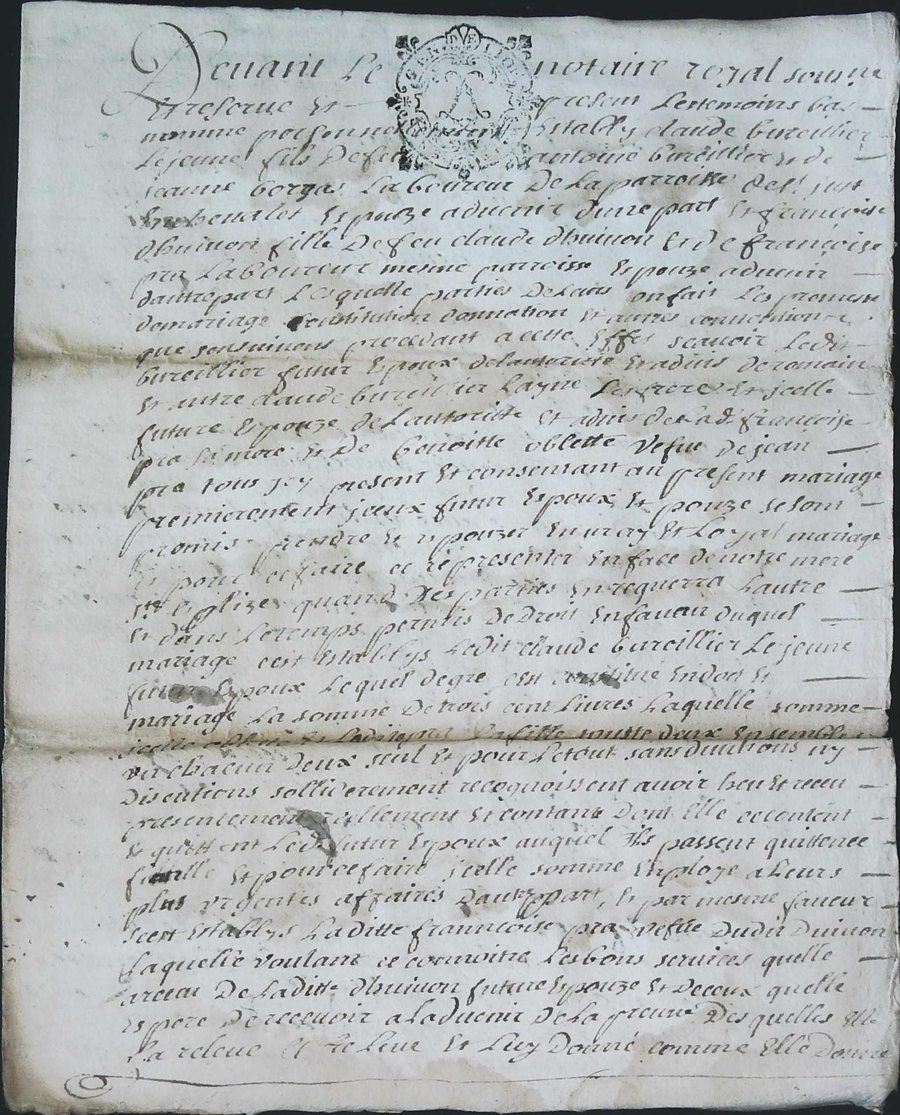 Devant Le notaire royal sousne
Et reserve Et present Les temoins bas
nomme personne Estably claude bureillier
Le jeune fils De feu antoine bureillier et de
jeanne borgas Laboureur De La parroisse de st just
Espouze advenir d'une part Et francoise
dhuinon fille De feu claude dhuinon Et De francoise
pra Laboureur mesme parroisse Espouze advenir
dautrepart Lesquelle parties De Leurs on fait Les promesse
De mariage Constitution donnation Et autres convention
que sensuivons procedant a cette Effet scavoir Ledit
bureillier futur Espoux de lautoritte Et advis de romain
Et autre claude bureillier Layne Les frere Et jcelle
future Espouze De Lautoritte Et advis De Lad francoise
pra sa mere Et De benoitte oblette vefue De jean
pra tous jcy present Et consentant au present mariage
premierement jceux futur Espoux Et pouze se sont
promis prendre Et Epouzer En vray Et Loyal mariage
Et pour ce faire ce representer En face De notre mere
ste Esglize quand Des parties En requerra Lautre
Et dans Le temps permis De Droit En faveur Duquel
mariage cest Establys Ledit claude bureillier Le jeune
futur Espoux Lequel de gre cest constitué En dot Et
mariage La somme De trois cent Livres Laquelle somme
jcelle oblette Et La fille Deux Ensemble
Et chacun Deux seul Et pour Le tout sans divitions ny
Discutions sollidairement recognoissent avoir heu Et receu
presentement reellement Et contant Dont Elle ce contént
Et quittent Led futur Espoux auquel Ils passent quittence
Et pour ce faire jcelle somme Employe a Leurs
plus urgentes affaires Dautrepart, Et par mesme faveur
cest Establys Laditte franncoise pra vefue Dudit Duinon
Laquelle voulant ce connoitre Les bons services quelle
a receu De Laditte dhuinon future Espouze Et De ceux quelle
Espere De recevoir a Ladvenir De La preuve Des quelles Elle
La releve Et releve Et Luy Donné comme Elle Donne